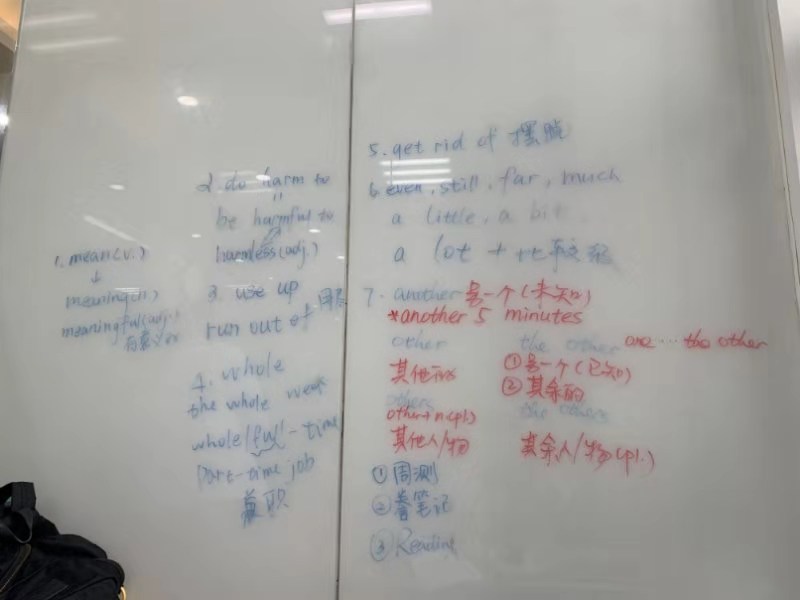 1. mean(v.)
↓
meaning(n)
meaningful(adj.)
有意义的
2. do harm to
=
be harmful to
harmless(adj.)
3. use up
run out of
4. whole
the whole week
whole/full-time
part-time job
兼职
5. get rid of 摆脱
6. even, still, far, much
a little, a bit
a lot + 比较级
7. another 另一个(未知)
*another 5 minutes
other
其他的
others
other+n(pl)
其他人/物
the other one…the other
①另一个(已知)
②其余的
the others
其余人/物(pl.)
①周测
②卷笔记
③Reading